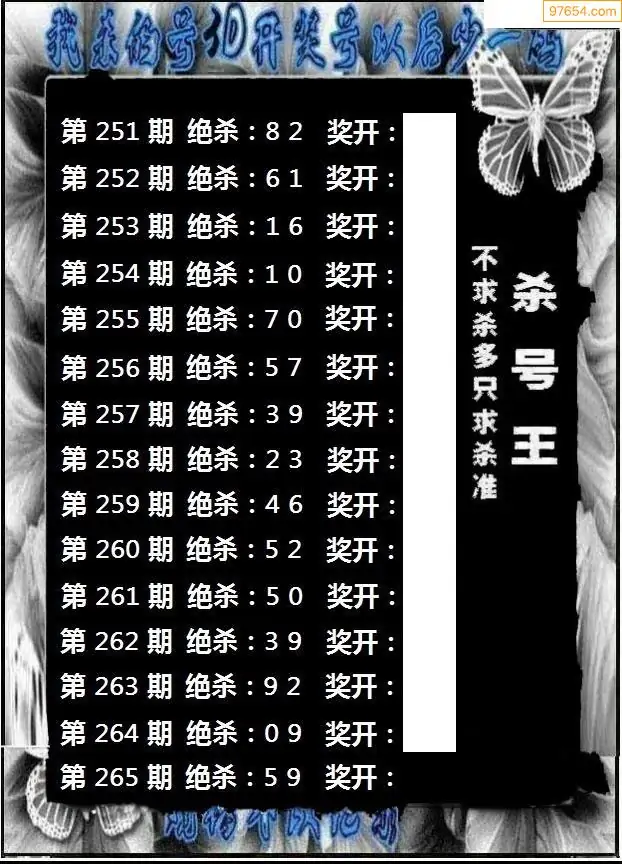 97654.com
我杀的号3D开奖号以后少一码
第 251 期 绝杀：8 2 奖开：
第 252 期 绝杀：6 1 奖开：
第 253 期 绝杀：1 6 奖开：
第 254 期 绝杀：1 0 奖开：
第 255 期 绝杀：7 0 奖开：
第 256 期 绝杀：5 7 奖开：
第 257 期 绝杀：3 9 奖开：
第 258 期 绝杀：2 3 奖开：
第 259 期 绝杀：4 6 奖开：
第 260 期 绝杀：5 2 奖开：
第 261 期 绝杀：5 0 奖开：
第 262 期 绝杀：3 9 奖开：
第 263 期 绝杀：9 2 奖开：
第 264 期 绝杀：0 9 奖开：
第 265 期 绝杀：5 9 奖开：
杀号王
不求杀多只求杀准